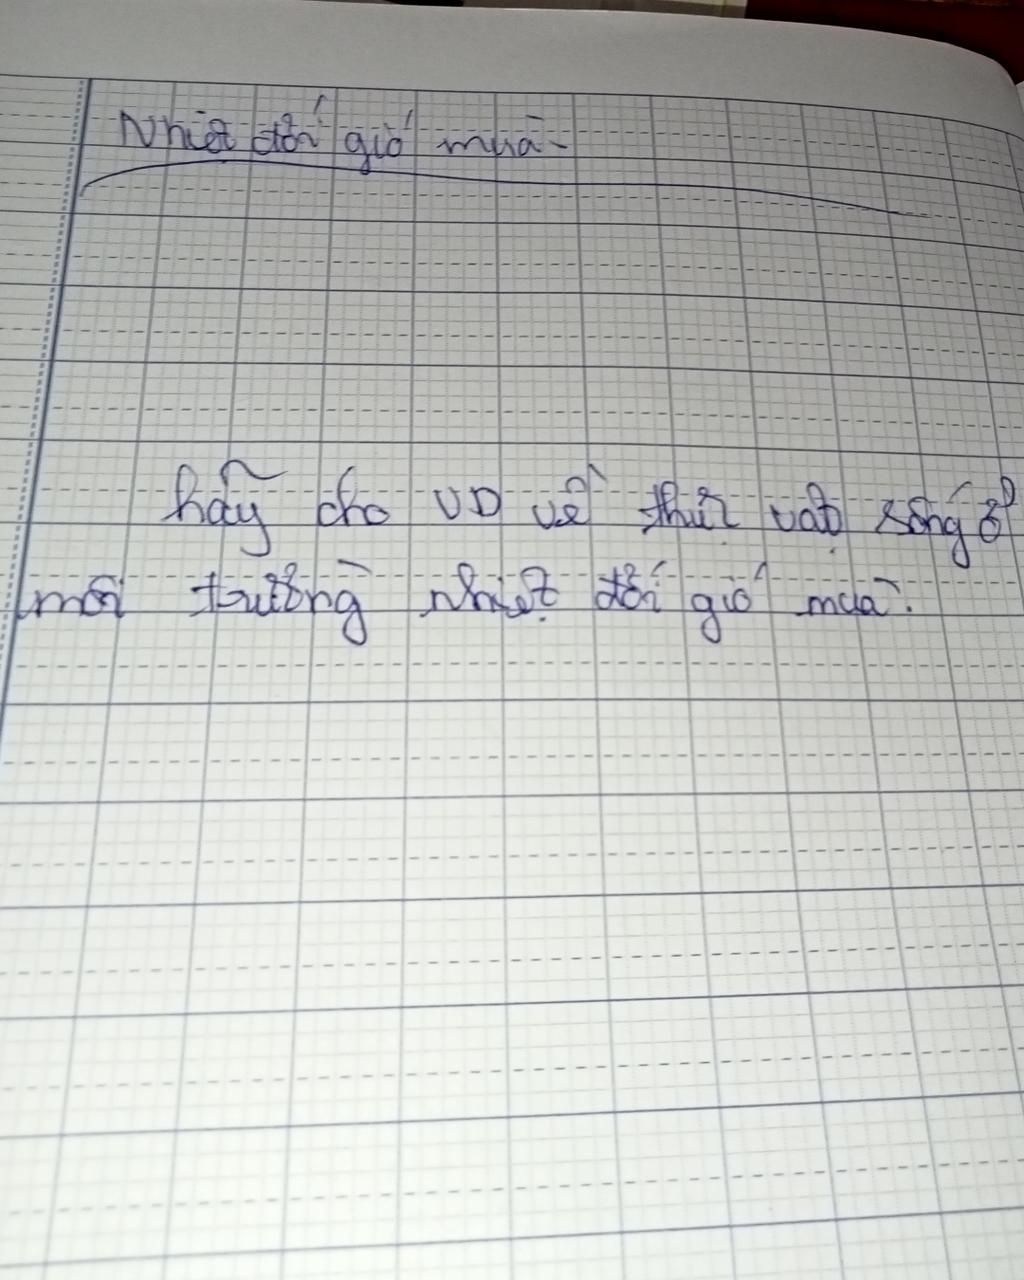 Nhiệt đới gió mùa
hãy cho VD về thực vật sống ở
môi trường nhiệt đới gió mùa.